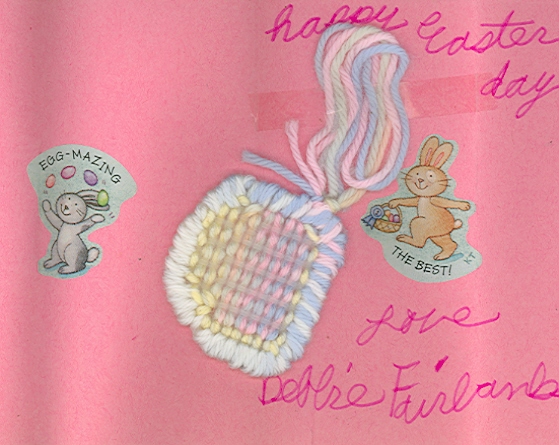 happy Easter
day
EGG-MAZING
THE BEST!
KT
Love
Debbie Fairbanks